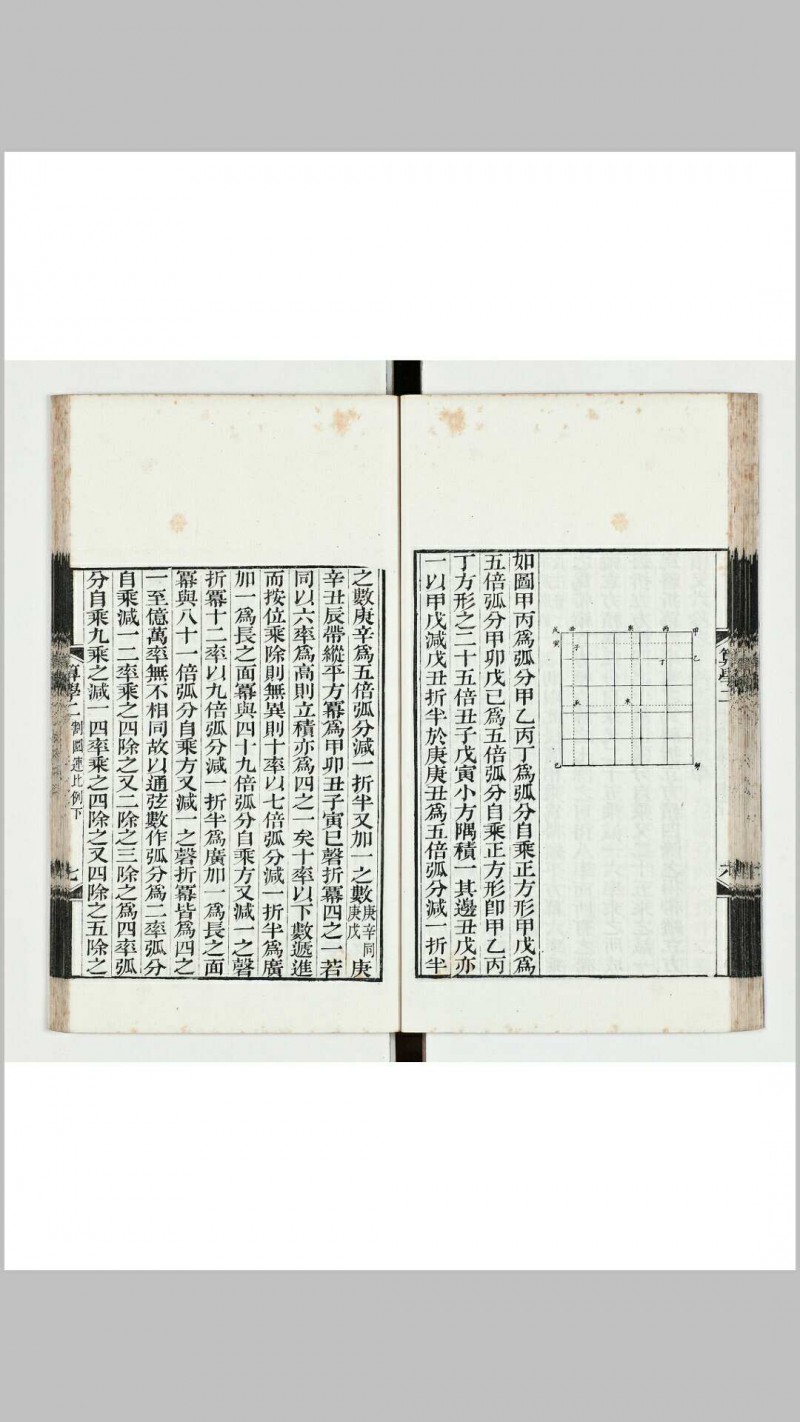 戊
寅
丑
子
庚
丙
甲
乙
丁
辰
未
己
卯
如圖甲丙爲弧分甲乙丙丁爲弧分自乘正方形甲戊爲
五倍弧分甲卯戊己爲五倍弧分自乘正方形卽甲乙丙
丁方形之二十五倍丑子戊寅小方隅積一其邊丑戊亦
一以甲戊減戊丑折半於庚庚丑爲五倍弧分減一折半
算學二
六
之數庚辛爲五倍弧分減一折半又加一之數庚辛同庚戊庚
辛丑辰帶縱平方冪爲甲卯丑子寅巳磬折冪四之一若
同以六率爲高則立積亦爲四之一矣十率以下數遞進
而按位乘除則無異則十率以七倍弧分減一折半爲廣
加一爲長之面冪與四十九倍弧分自乘方又減一之磬
折冪十二率以九倍弧分減一折半爲廣加一爲長之面
冪與八十一倍弧分自乘方又減一之磬折冪皆爲四之
一至億萬率無不相同故以通弦數作弧分爲二率弧分
自乘減一二率乘之四除之又二除之三除之爲四率弧
分自乘九乘之減一四率乘之四除之又四除之五除之
算學二 割圜連比例下
七